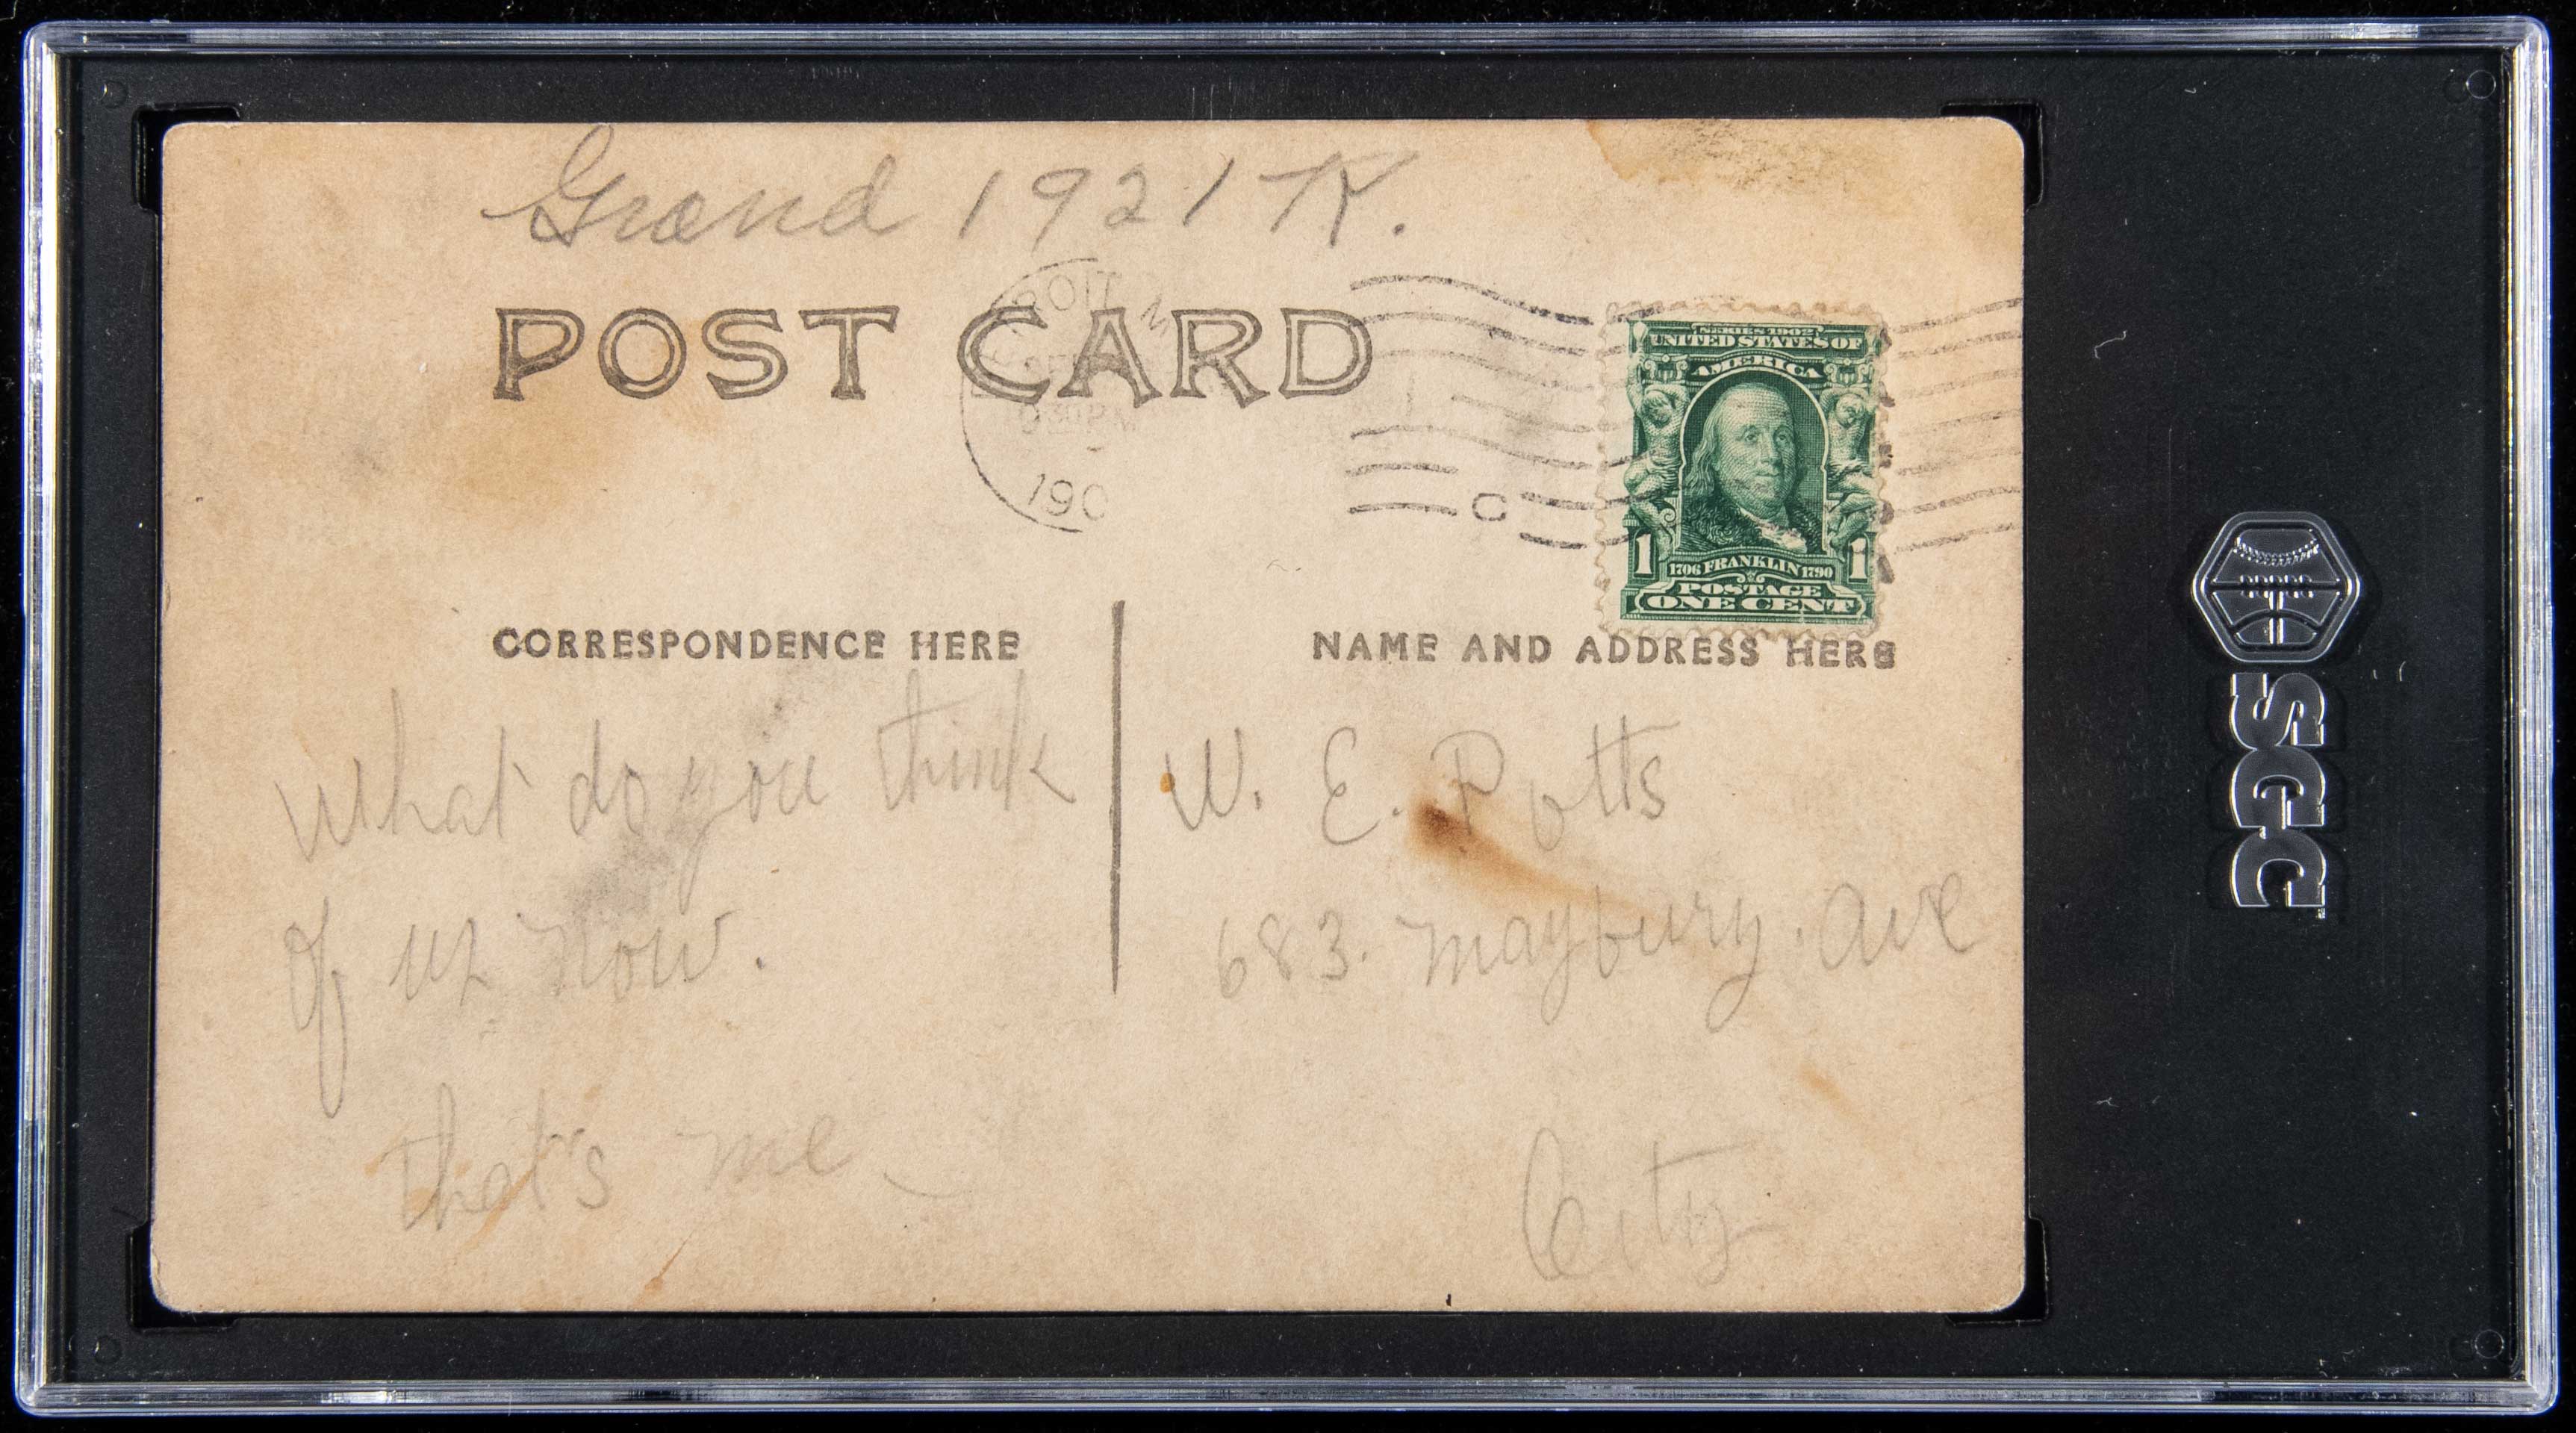 Grand 1921 R.
POST CARD
ROIT M
30 PM
190
C
SERIES 1902
UNITED STATES OF
AMERICA
1 1706 FRANKLIN 1790 1
POSTAGE
ONE CENT
CORRESPONDENCE HERE
NAME AND ADDRESS HERE
What do you think
of us now.
that's me
W. E. Potts
683. Maybury. Ave
City
SGC